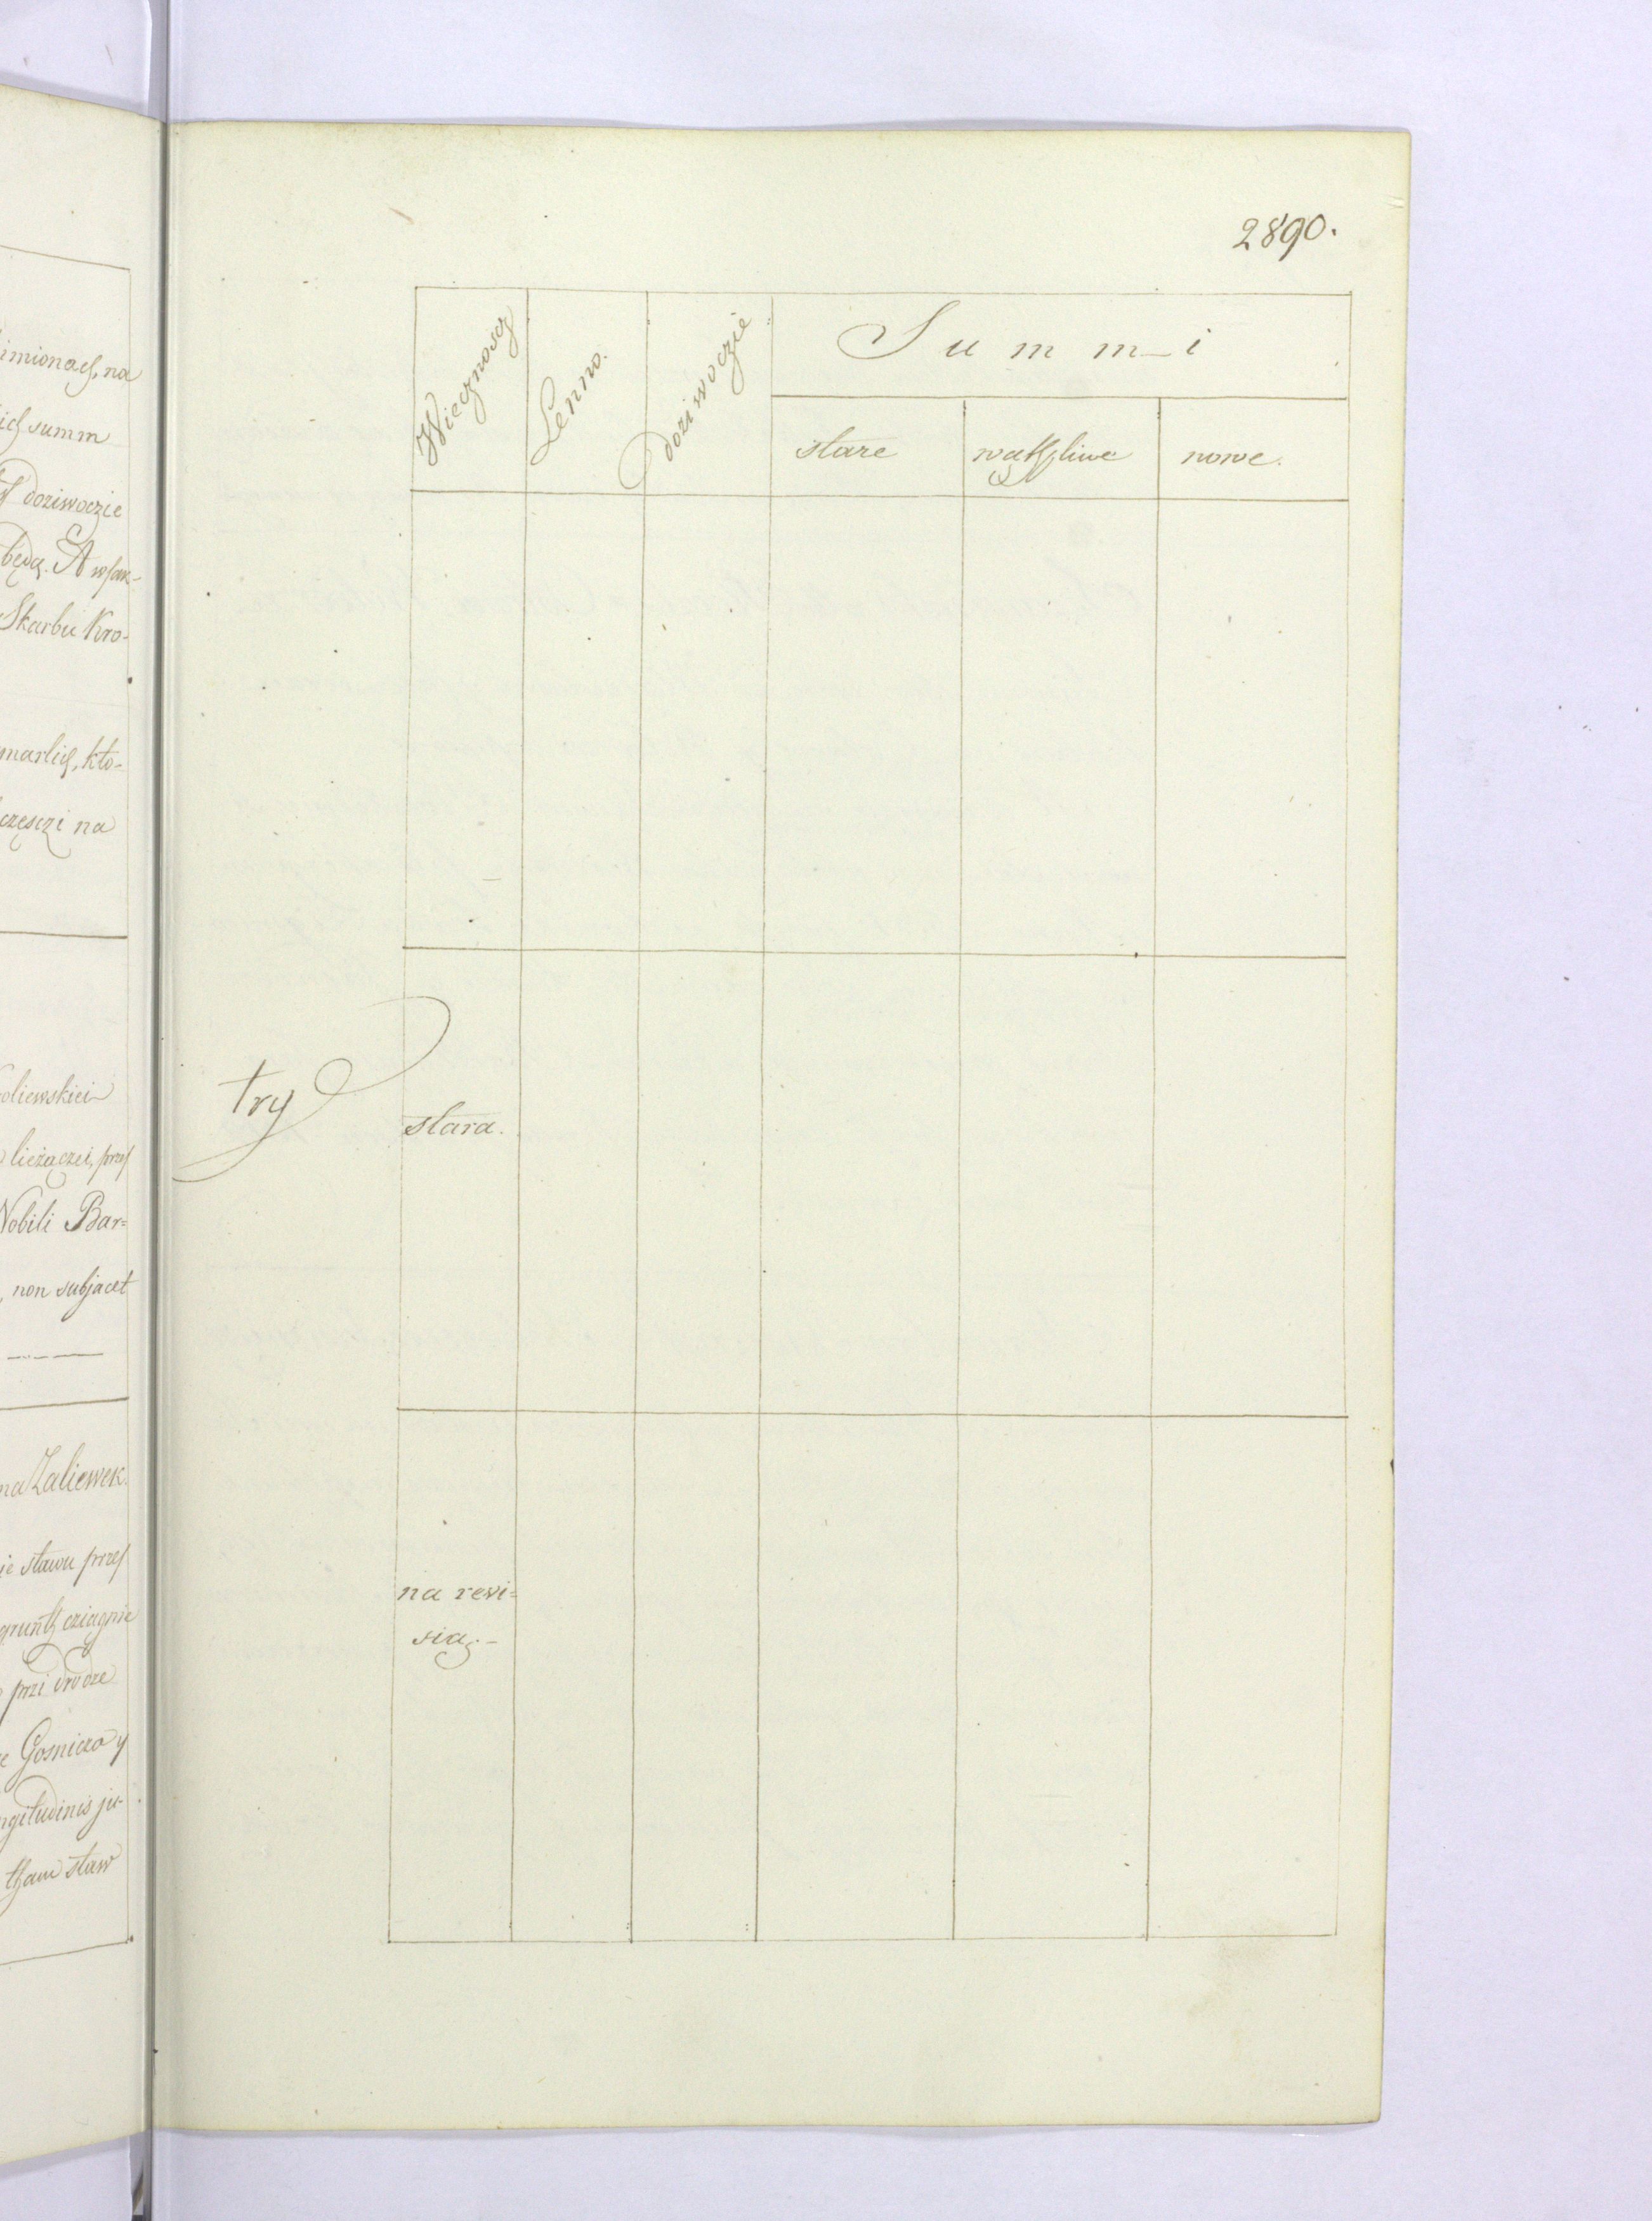 imionach, na
ich summ
doziwoczie
będą. A wsak-
Skarbu Kro-
marlich, kto-
częsczi na
oliewskiei
liezączei, przes
Nobili Bar=
, non subjacet
na Zaliewek.
ie stawu przes
grunth cziągnie
przi drodze
Gosnicza y
ngitudinis ju-
tham staw
2890.
Wiecznoscz
Lenno.
doziwoczie
Summi
stare
wąthpliwe
nowe.
try
stara.
na rewi=
sią.-